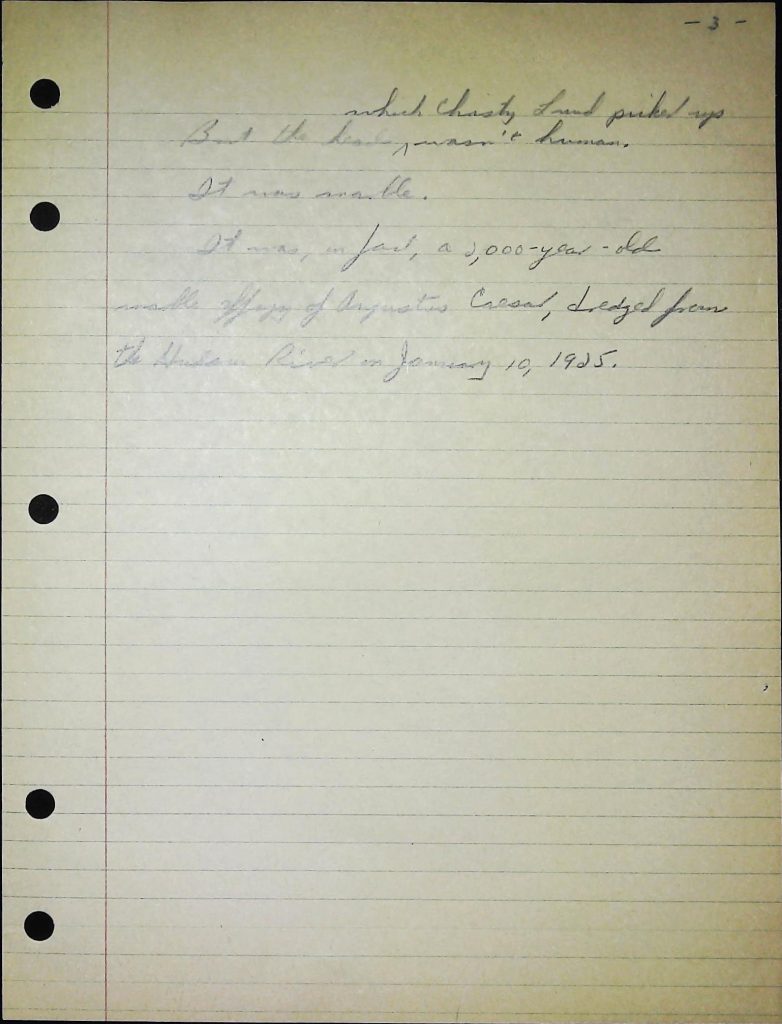 - 3 -
which Christy Lund picked up
But the head, wasn't human.
It was marble.
It was, in fact, a 2,000-year-old
marble effigy of Augustus Caesar, dredged from
the Hudson River on January 10, 1925.